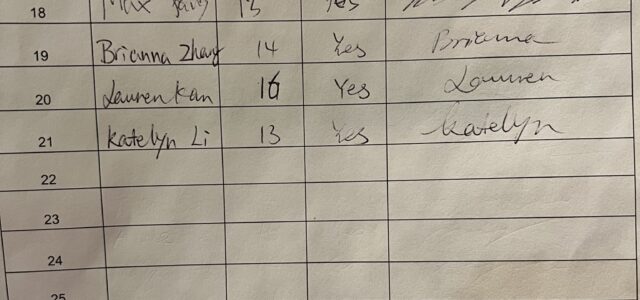 18 Max 13 Yes
19 Brianna Zhang 14 Yes Brianna
20 Lauren Kan 16 Yes Lauren
21 Katelyn Li 13 Yes Katelyn
22
23
24
25